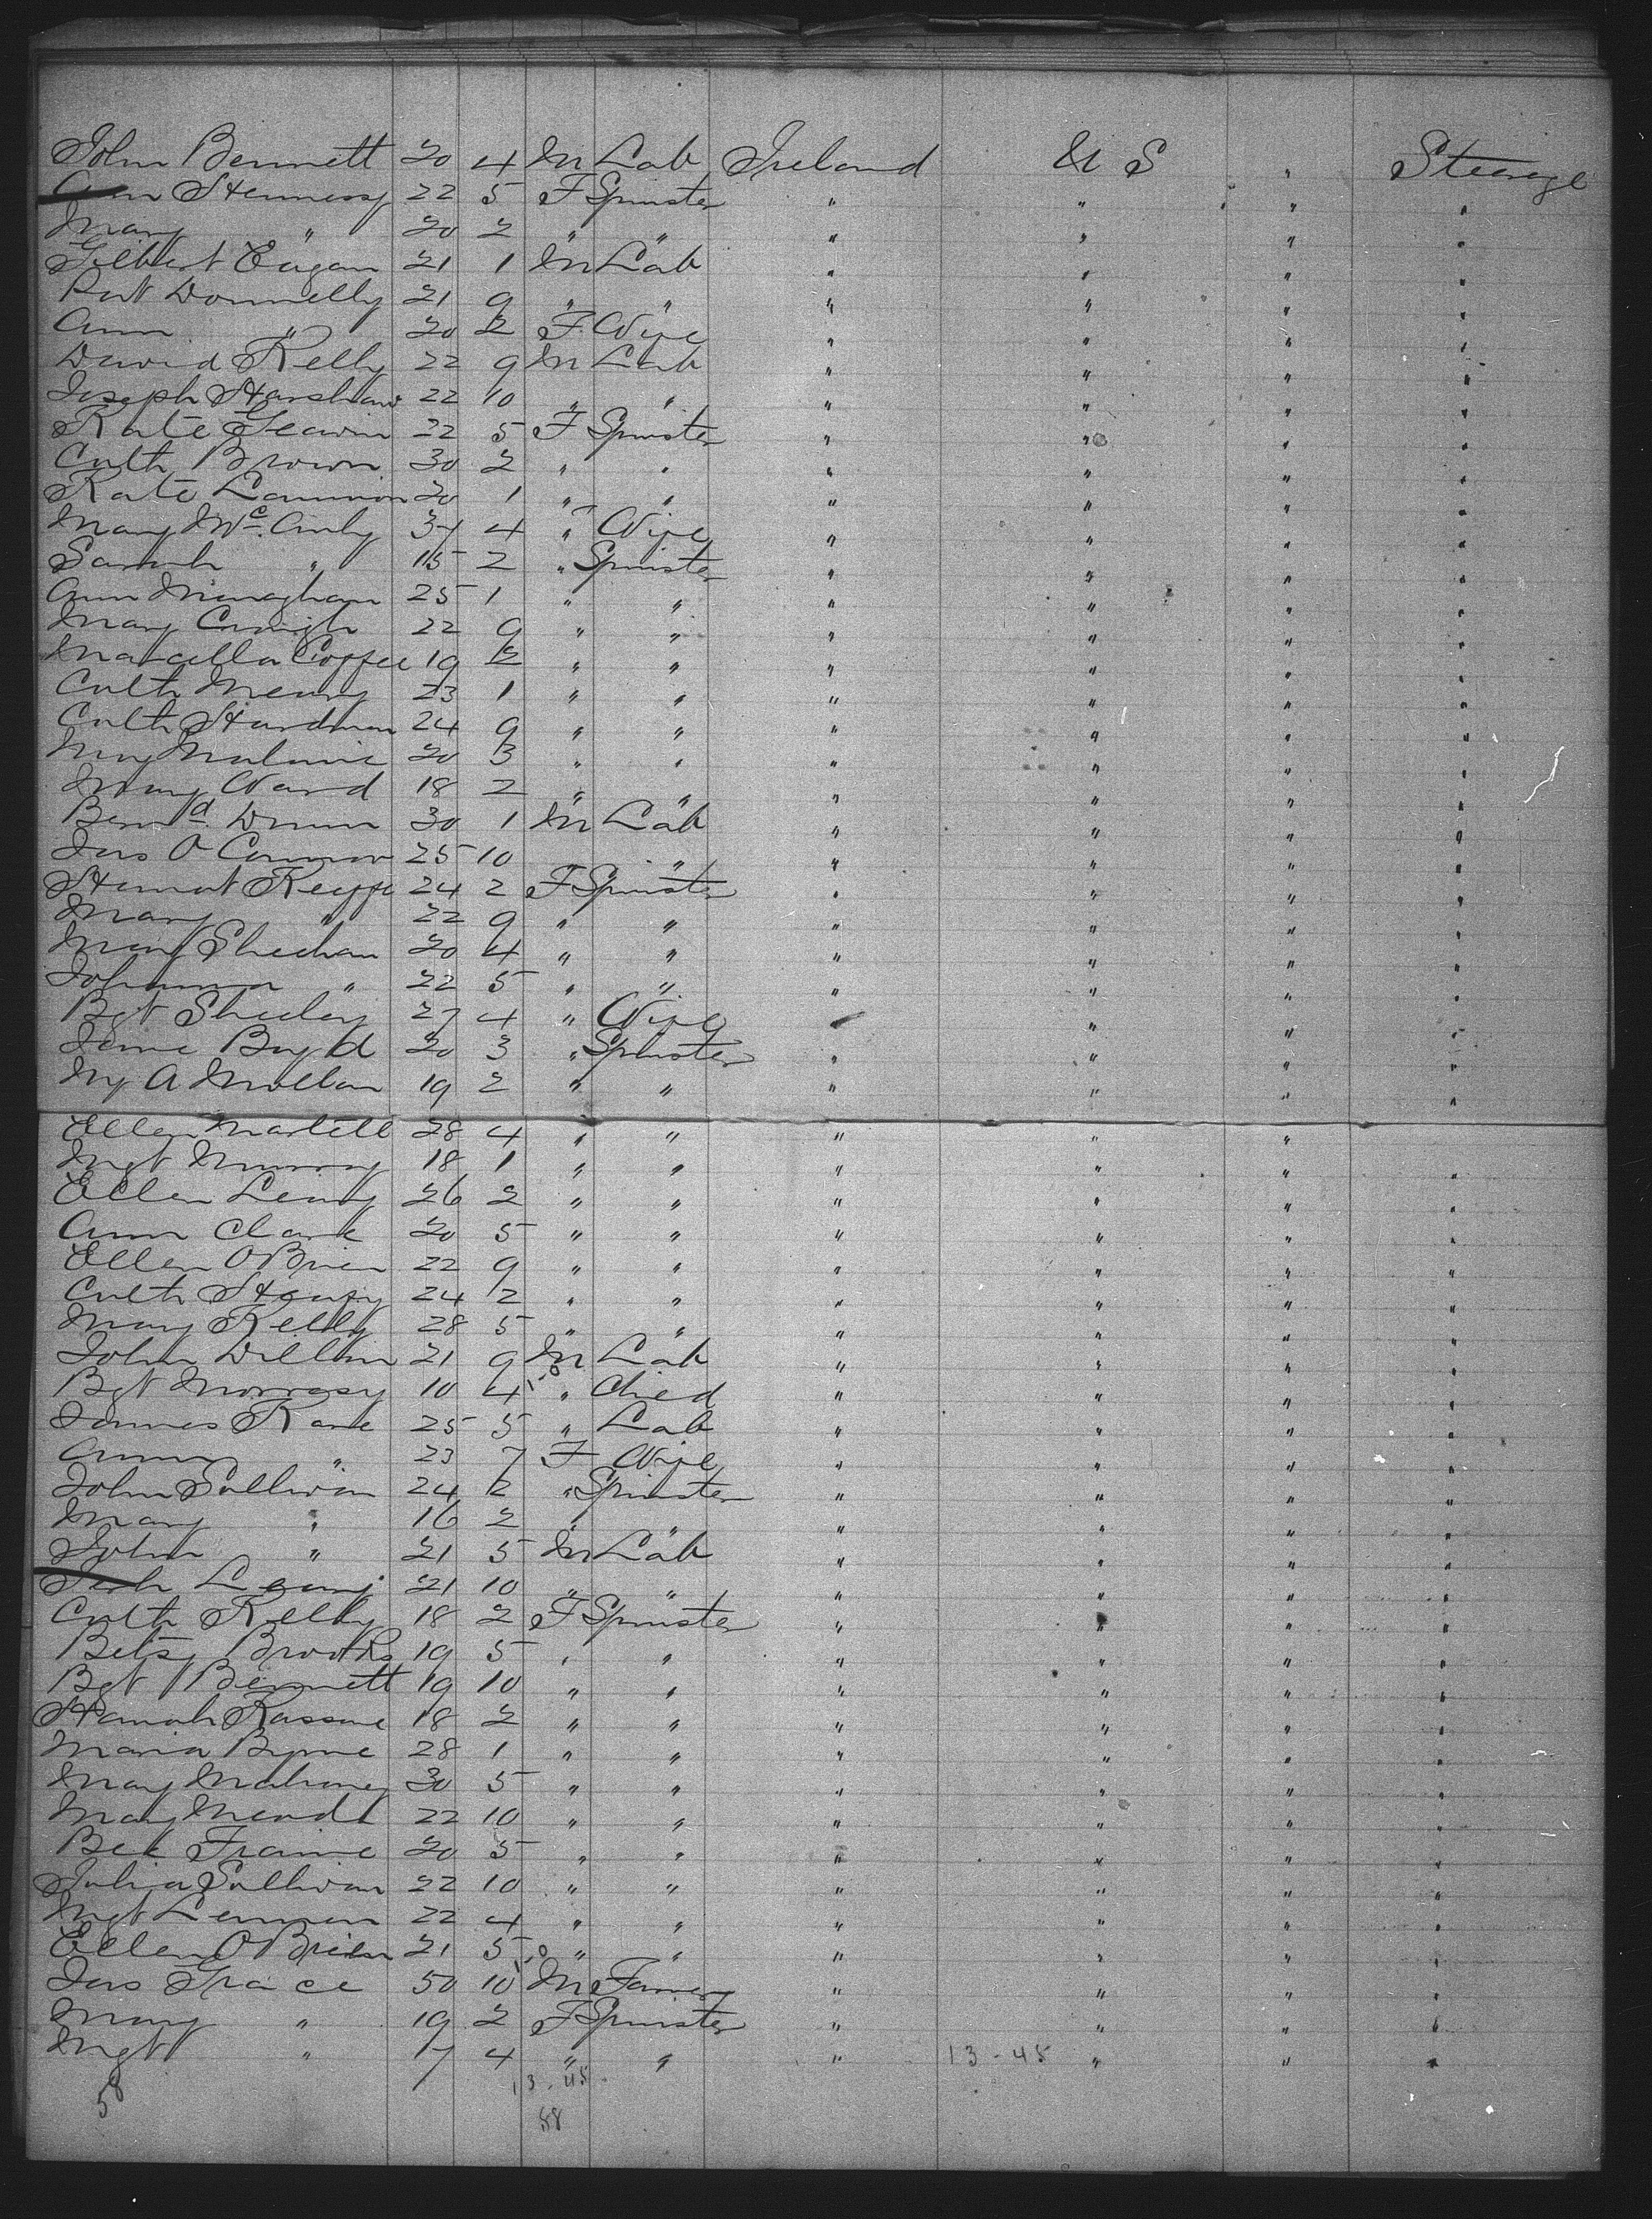 John Bennett 20 4 M Lab Ireland U S " Steerage
Ann Hennessy 22 5 F Spinster " " " "
Mary " 20 2 " " " " " "
Gilbert Eagan 21 1 M Lab " " " "
Pat Donnelly 21 9 " " " " " "
Ann " 20 2 F Wife " " " "
David Kelly 22 9 M Lab " " " "
Joseph Harshaw 22 10 " " " " " "
Kate Geavin 22 5 F Spinster " " " "
Cath Brown 30 2 " " " " " "
Kate Lannion 20 1 " " " " " "
Mary McAnly 37 4 " Wife " " " "
Sarah " 15 2 " Spinster " " " "
Ann Monaghan 25 1 " " " " " "
Mary Creigh 22 9 " " " " " "
Marcella Coffee 19 2 " " " " " "
Cath Meany 23 1 " " " " " "
Cath Hardman 24 9 " " " " " "
Mary 20 3 " " " " " "
Mary Ward 18 2 " " " " " "
Bernd Dunn 30 1 M Lab " " " "
Jas O Connor 25 10 " " " " " "
Hannah Keeffe 24 2 F Spinster " " " "
Mary " 22 9 " " " " " "
Mary Sheehan 20 4 " " " " " "
Johanna " 22 5 " " " " " "
Bgt Sheeley 27 4 " Wife " " " "
Jane Boyd 20 3 " Spinster " " " "
My A Mullan 19 2 " " " " " "
Ellen Martell 28 4 " " " " "
Mgt Murray 18 1 " " " " " "
Ellen Leary 26 2 " " " " " "
Ann Clark 20 5 " " " " " "
Ellen O Brien 22 9 " " " " " "
Cath 24 2 " " " " " "
Mary Kelly 28 5 " " " " " "
John Dillon 21 9 M Lab " " " "
Bgt Morrasy 10 4 " Child " " " "
James Kane 25 5 " Lab " " " "
Ann " 23 7 F Wife " " " "
John Sullivan 24 2 " Spinster " " " "
Mary " 16 2 " " " " " "
John " 21 5 M Lab " " " "
Leary 21 10 " " " " " "
Cath Kelly 18 2 F Spinster " " " "
Betsy Brooks 19 5 " " " " " "
Bgt Bennett 19 10 " " " " " "
Hannah Rassme 18 2 " " " " " "
Maria Byrne 28 1 " " " " " "
Mary Mahoney 30 5 " " " " " "
Mary 22 10 " " " " " "
Frame 20 5 " " " " " "
Julia Sullivan 22 10 " " " " " "
Mgt Lennon 22 4 " " " " " "
Ellen O Brien 21 5 " " " " " "
Jas Grace 50 10 M Farmer " " " "
Mary " 19 2 F Spinster " " " "
Mgt " 17 4 " " " 13-45 " " "
58 13-45
58